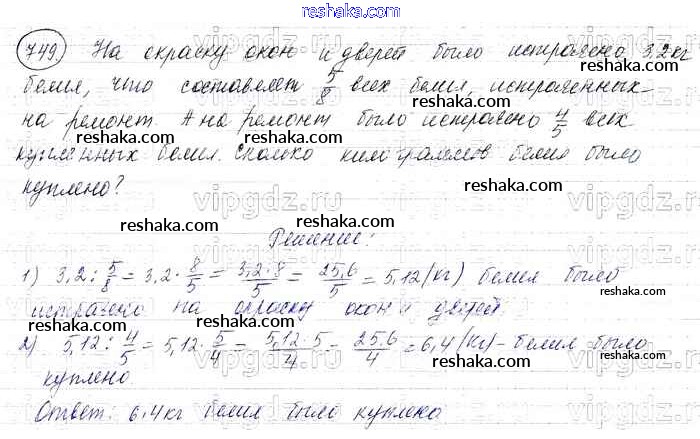 reshaka.com
749. На окраску окон и дверей было истрачено 3,2 кг
reshaka.com
белил, что составляет 5/8 всех белил, истраченных
на ремонт. А на ремонт было истрачено 4/5 всех
купленных белил. Сколько килограммов белил было
куплено?
reshaka.com reshaka.com
vipgdz.ru vipgdz.ru
Решение:
1) 3,2 : 5/8 = 3,2 · 8/5 = 3,2·8/5 = 25,6/5 = 5,12 (кг) белил было
reshaka.com reshaka.com
истрачено на окраску окон и дверей.
2) 5,12 : 4/5 = 5,12 · 5/4 = 5,12·5/4 = 25,6/4 = 6,4 (кг) - белил было
reshaka.com reshaka.com
куплено.
Ответ: 6,4 кг белил было куплено
reshaka.com